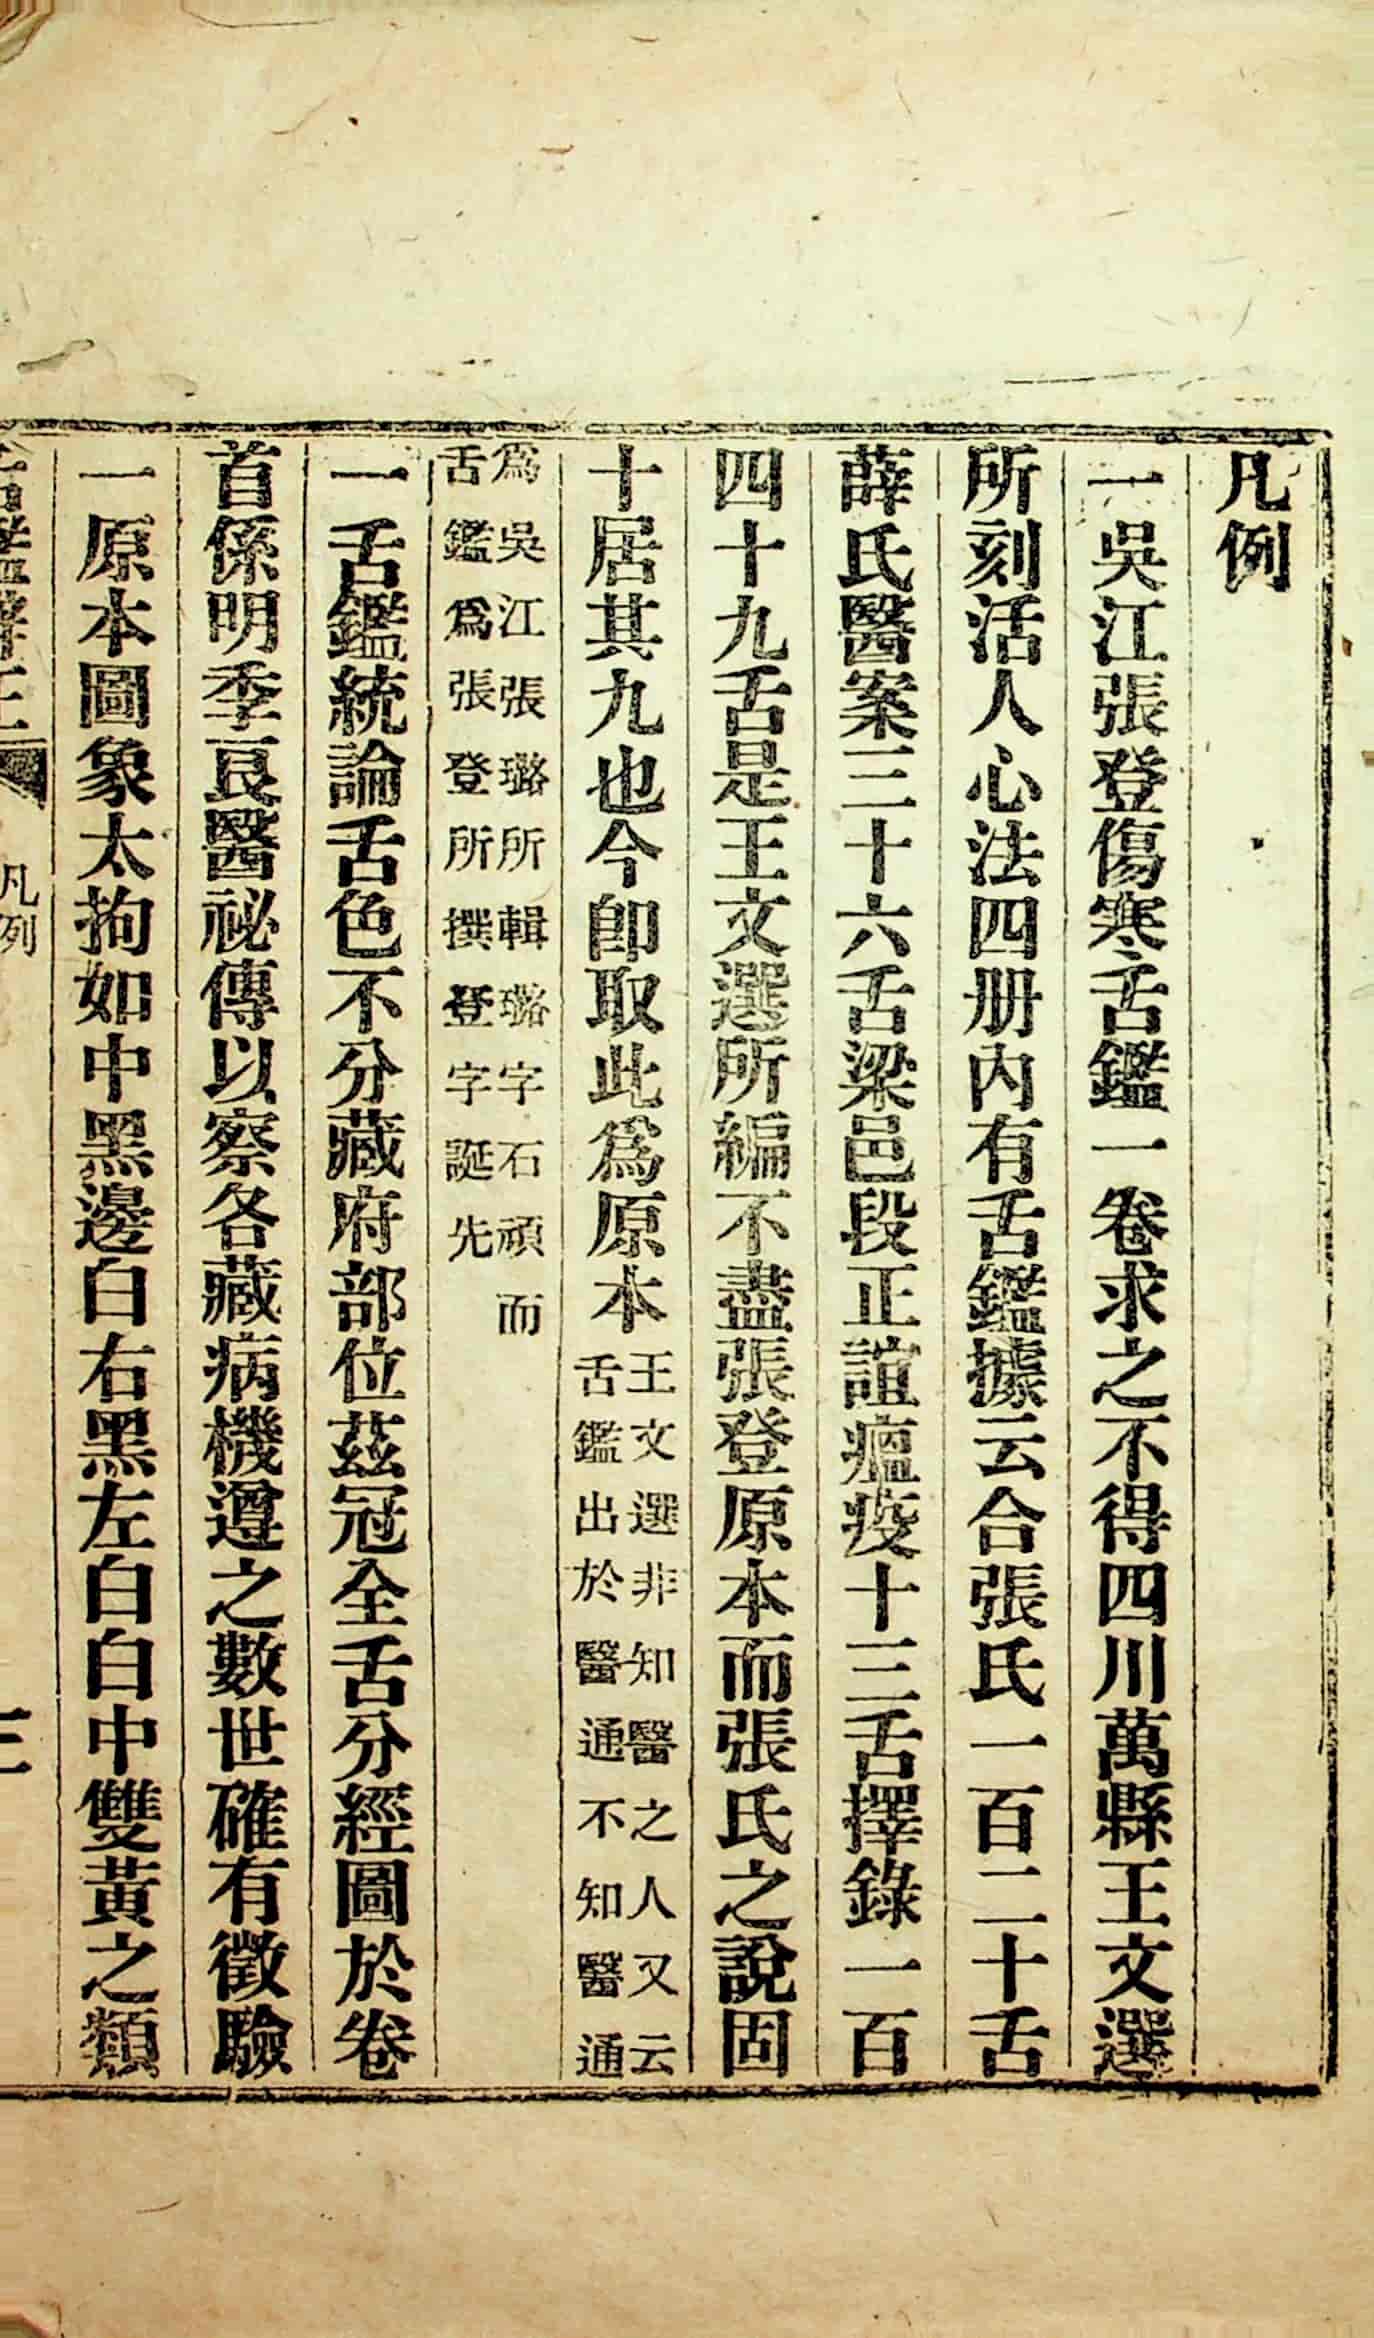 凡例
一吳江張登傷寒舌鑑一卷求之不得四川萬縣王文選
所刻活人心法四册內有舌鑑據云合張氏一百二十舌
薛氏醫案三十六舌梁邑段正誼瘟疫十三舌擇錄一百
四十九舌是王文選所編不盡張登原本而張氏之說固
十居其九也今卽取此爲原本
王文選非知醫之人又云
舌鑑出於醫通不知醫通
爲吳江張璐所輯璐字石頑而
舌鑑爲張登所撰登字誕先
一舌鑑統論舌色不分藏府部位茲冠全舌分經圖於卷
首係明季良醫祕傳以察各藏病機遵之數世確有徵驗
一原本圖象太拘如中黑邊白右黑左白白中雙黃之類
舌鑑辨正
凡例